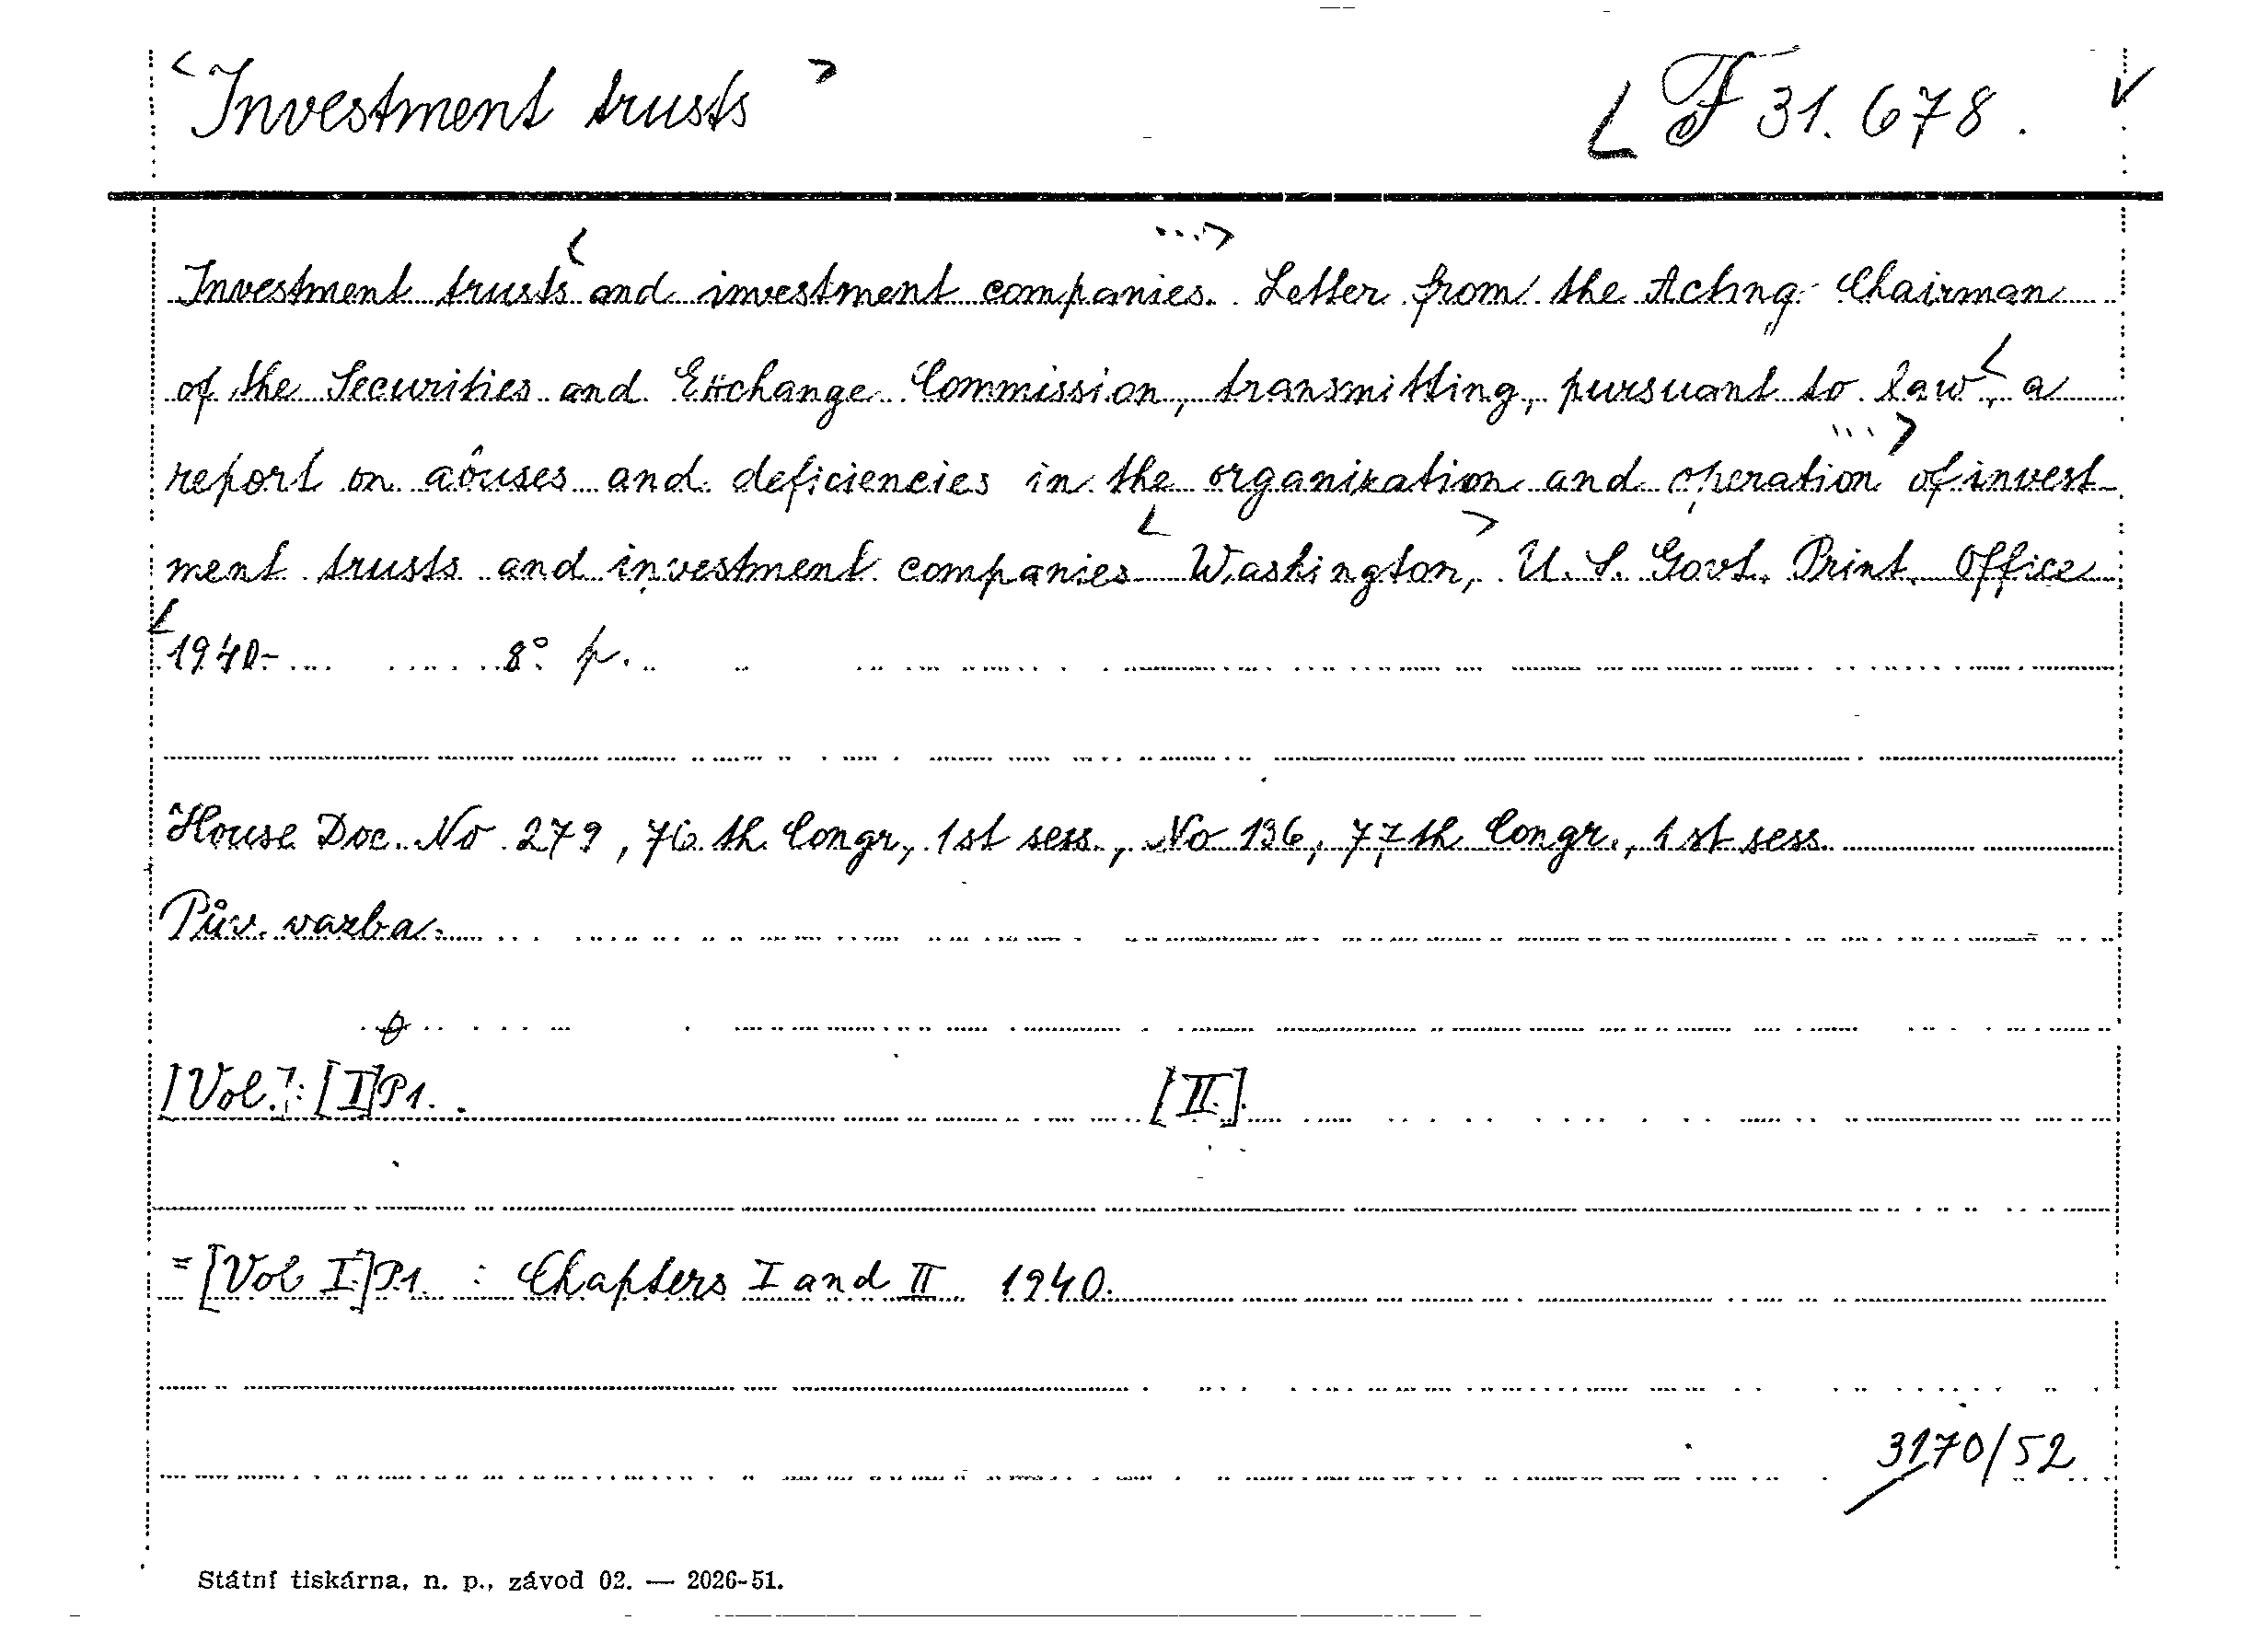 <Investment trusts> F 31.678.
Investment trusts and investment companies. Letter from the Acting Chairman
of the Securities and Exchange Commission, transmitting, pursuant to law, a
report on abuses and deficiencies in the organization and operation of invest-
ment trusts and investment companies Washington, U. S. Govt. Print. Office
1940- 8° p.
House Doc. No 279, 76th Congr., 1st sess., No 136, 77th Congr., 1st sess.
Pův. vazba.
[Vol.]: [I]P1. [II.]
=[Vol I.]P.1. : Chapters I and II 1940.
3170/52
Státní tiskárna, n. p., závod 02. — 2026-51.